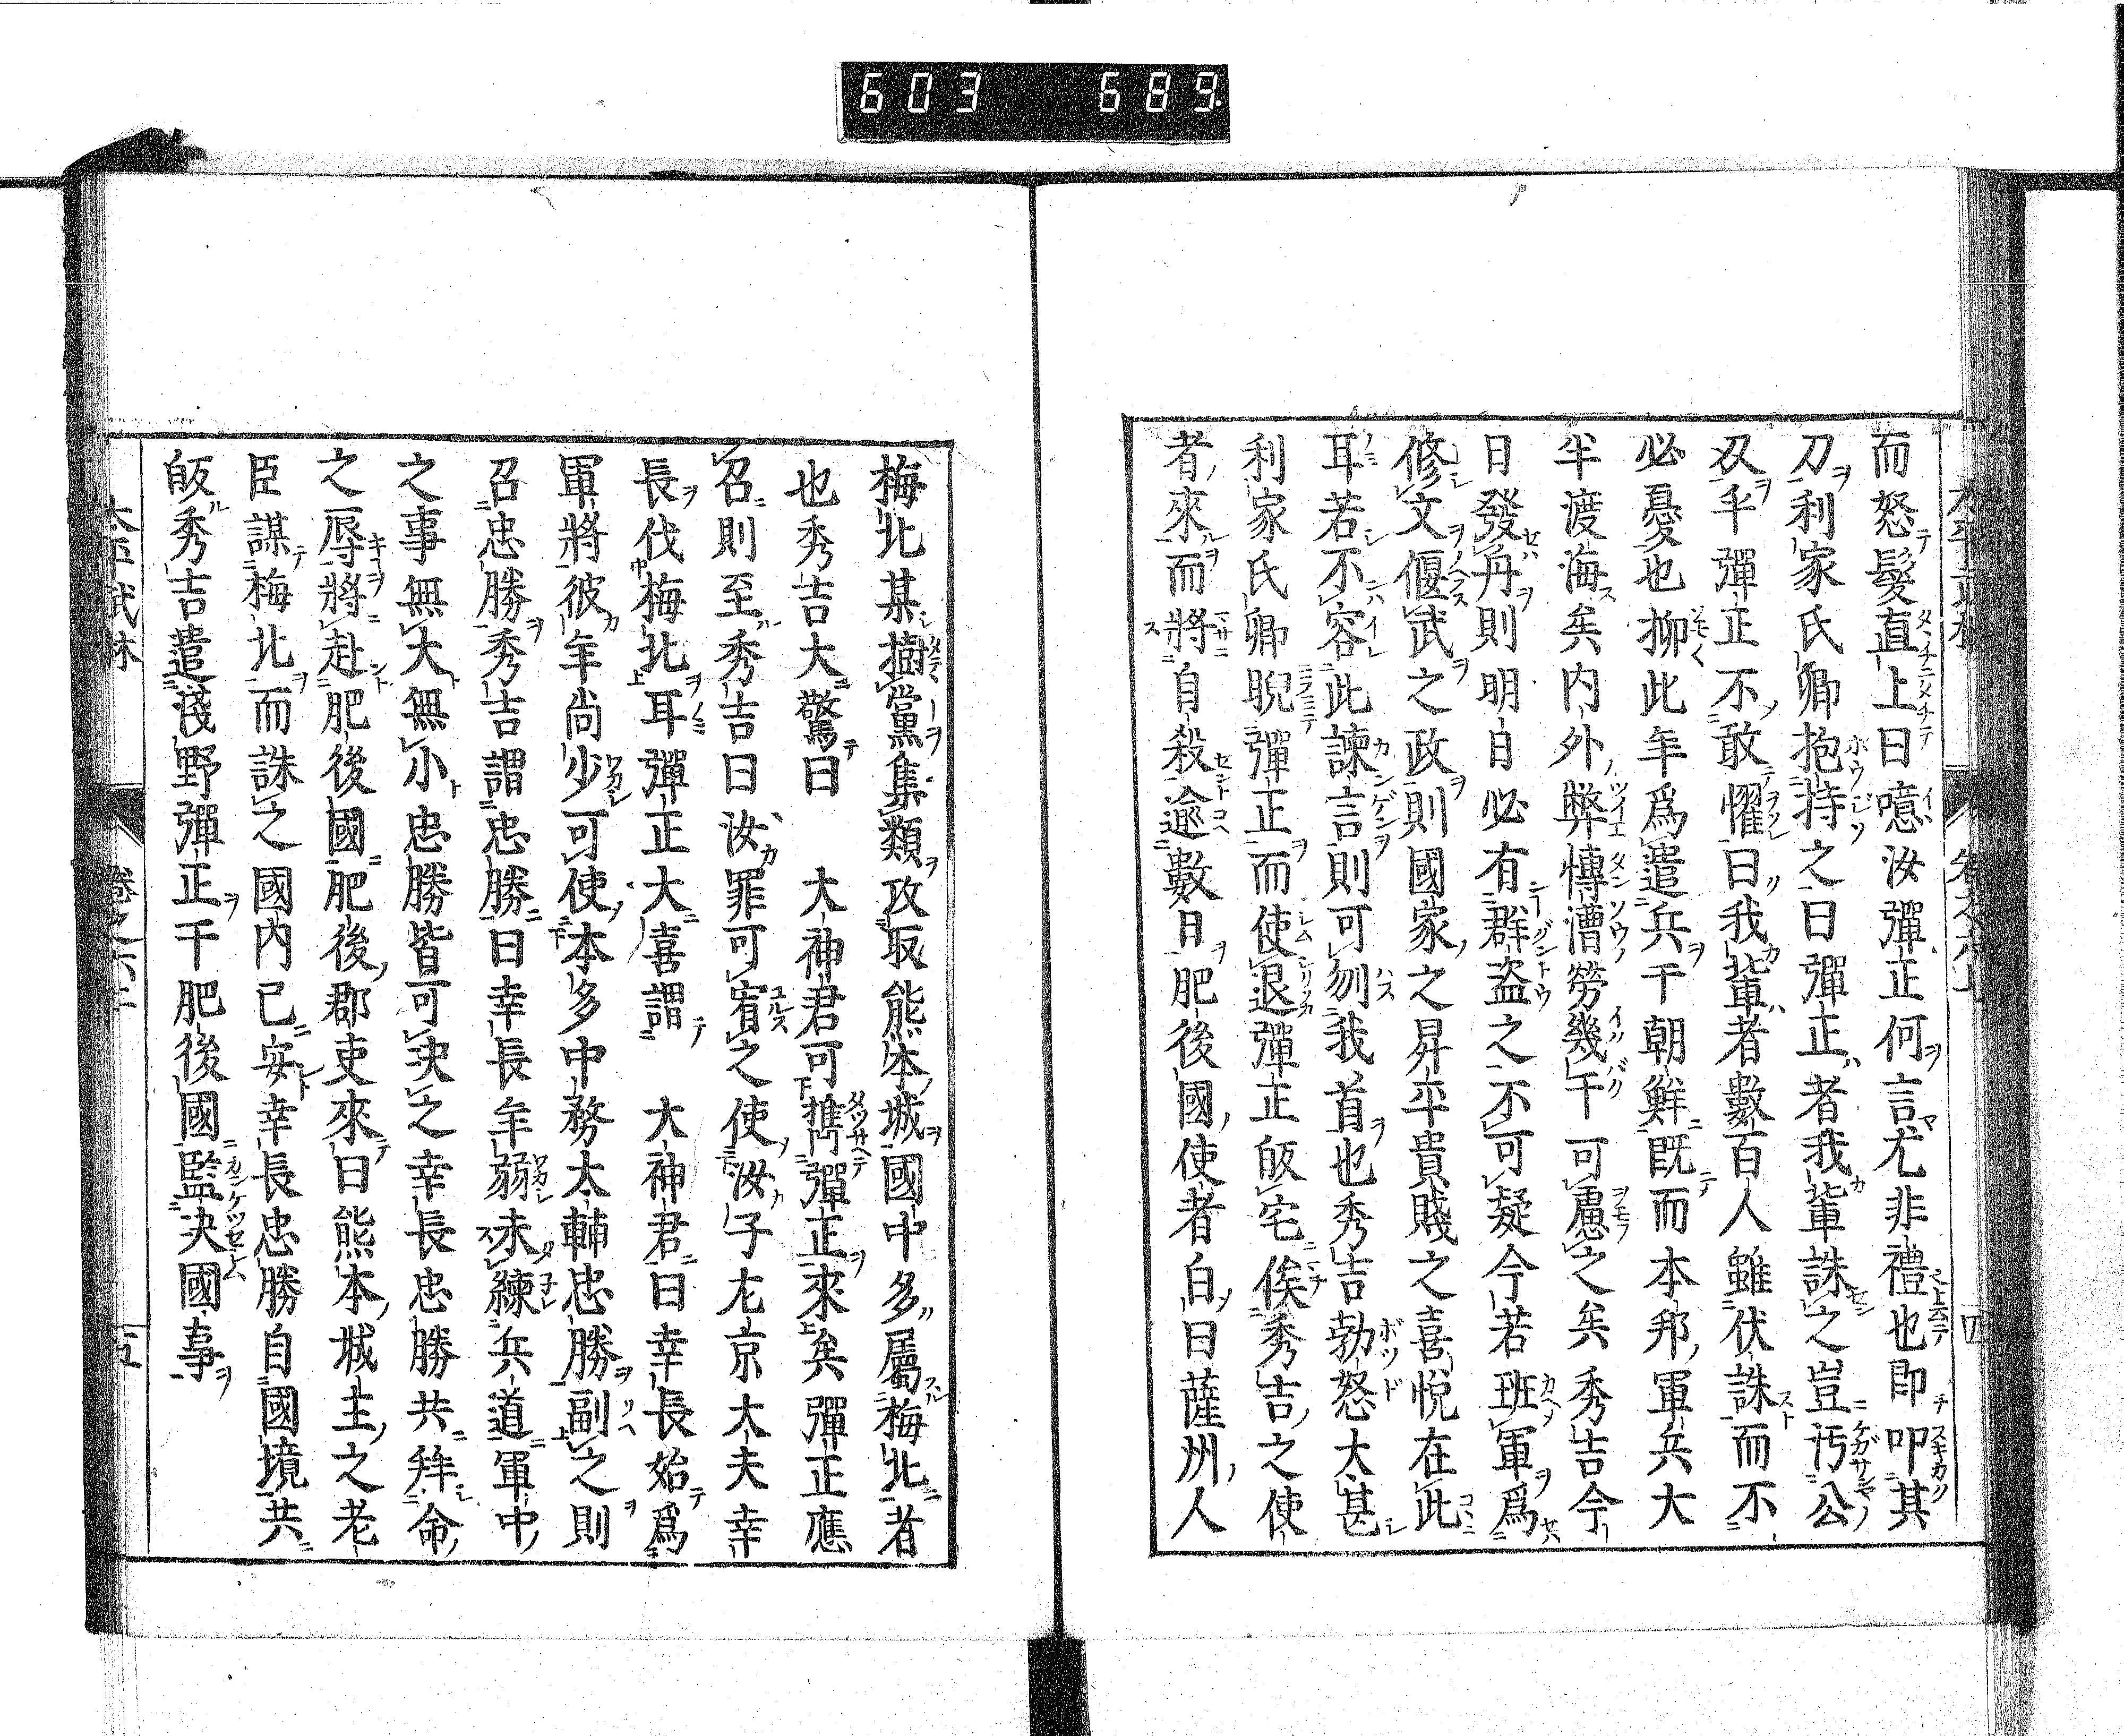 603 689
而怒髮直上曰噫汝彈正何言尤非禮也即叩其
刀利家氏卿抱持之曰彈正者我輩誅之豈汚公
刄乎彈正不敢懼曰我輩者數百人雖伏誅而不
必憂也抑此年爲遣兵于朝鮮既而本邦軍兵大
半渡海矣内外弊慱漕勞幾千可慮之矣秀吉今
日發舟則明日必有群盗之不可疑今若班軍爲
修文偃武之政則國家之昇平貴賤之喜悦在此
耳若不容此諫言則可刎我首也秀吉勃怒大甚
利家氏卿睨彈正而使退彈正皈宅俟秀吉之使
者來而將自殺逾數日肥後國使者白曰薩州人
梅北某樹黨集類攻取熊本城國中多屬梅北者
也秀吉大驚曰　大神君可携彈正來矣彈正應
召則至秀吉曰汝罪可宥之使汝子左京大夫幸
長伐梅北耳彈正大喜謂　大神君曰幸長始爲
軍將彼年尚少可使本多中務太輔忠勝副之則
召忠勝秀吉謂忠勝曰幸長年弱未練兵道軍中
之事無大無小忠勝皆可決之幸長忠勝共拜命
之辱將赴肥後國肥後郡吏來曰熊本城主之老
臣謀梅北而誅之國内已安幸長忠勝自國境共
皈秀吉遣淺野彈正于肥後國監決國事
太平武林　卷之六上　五